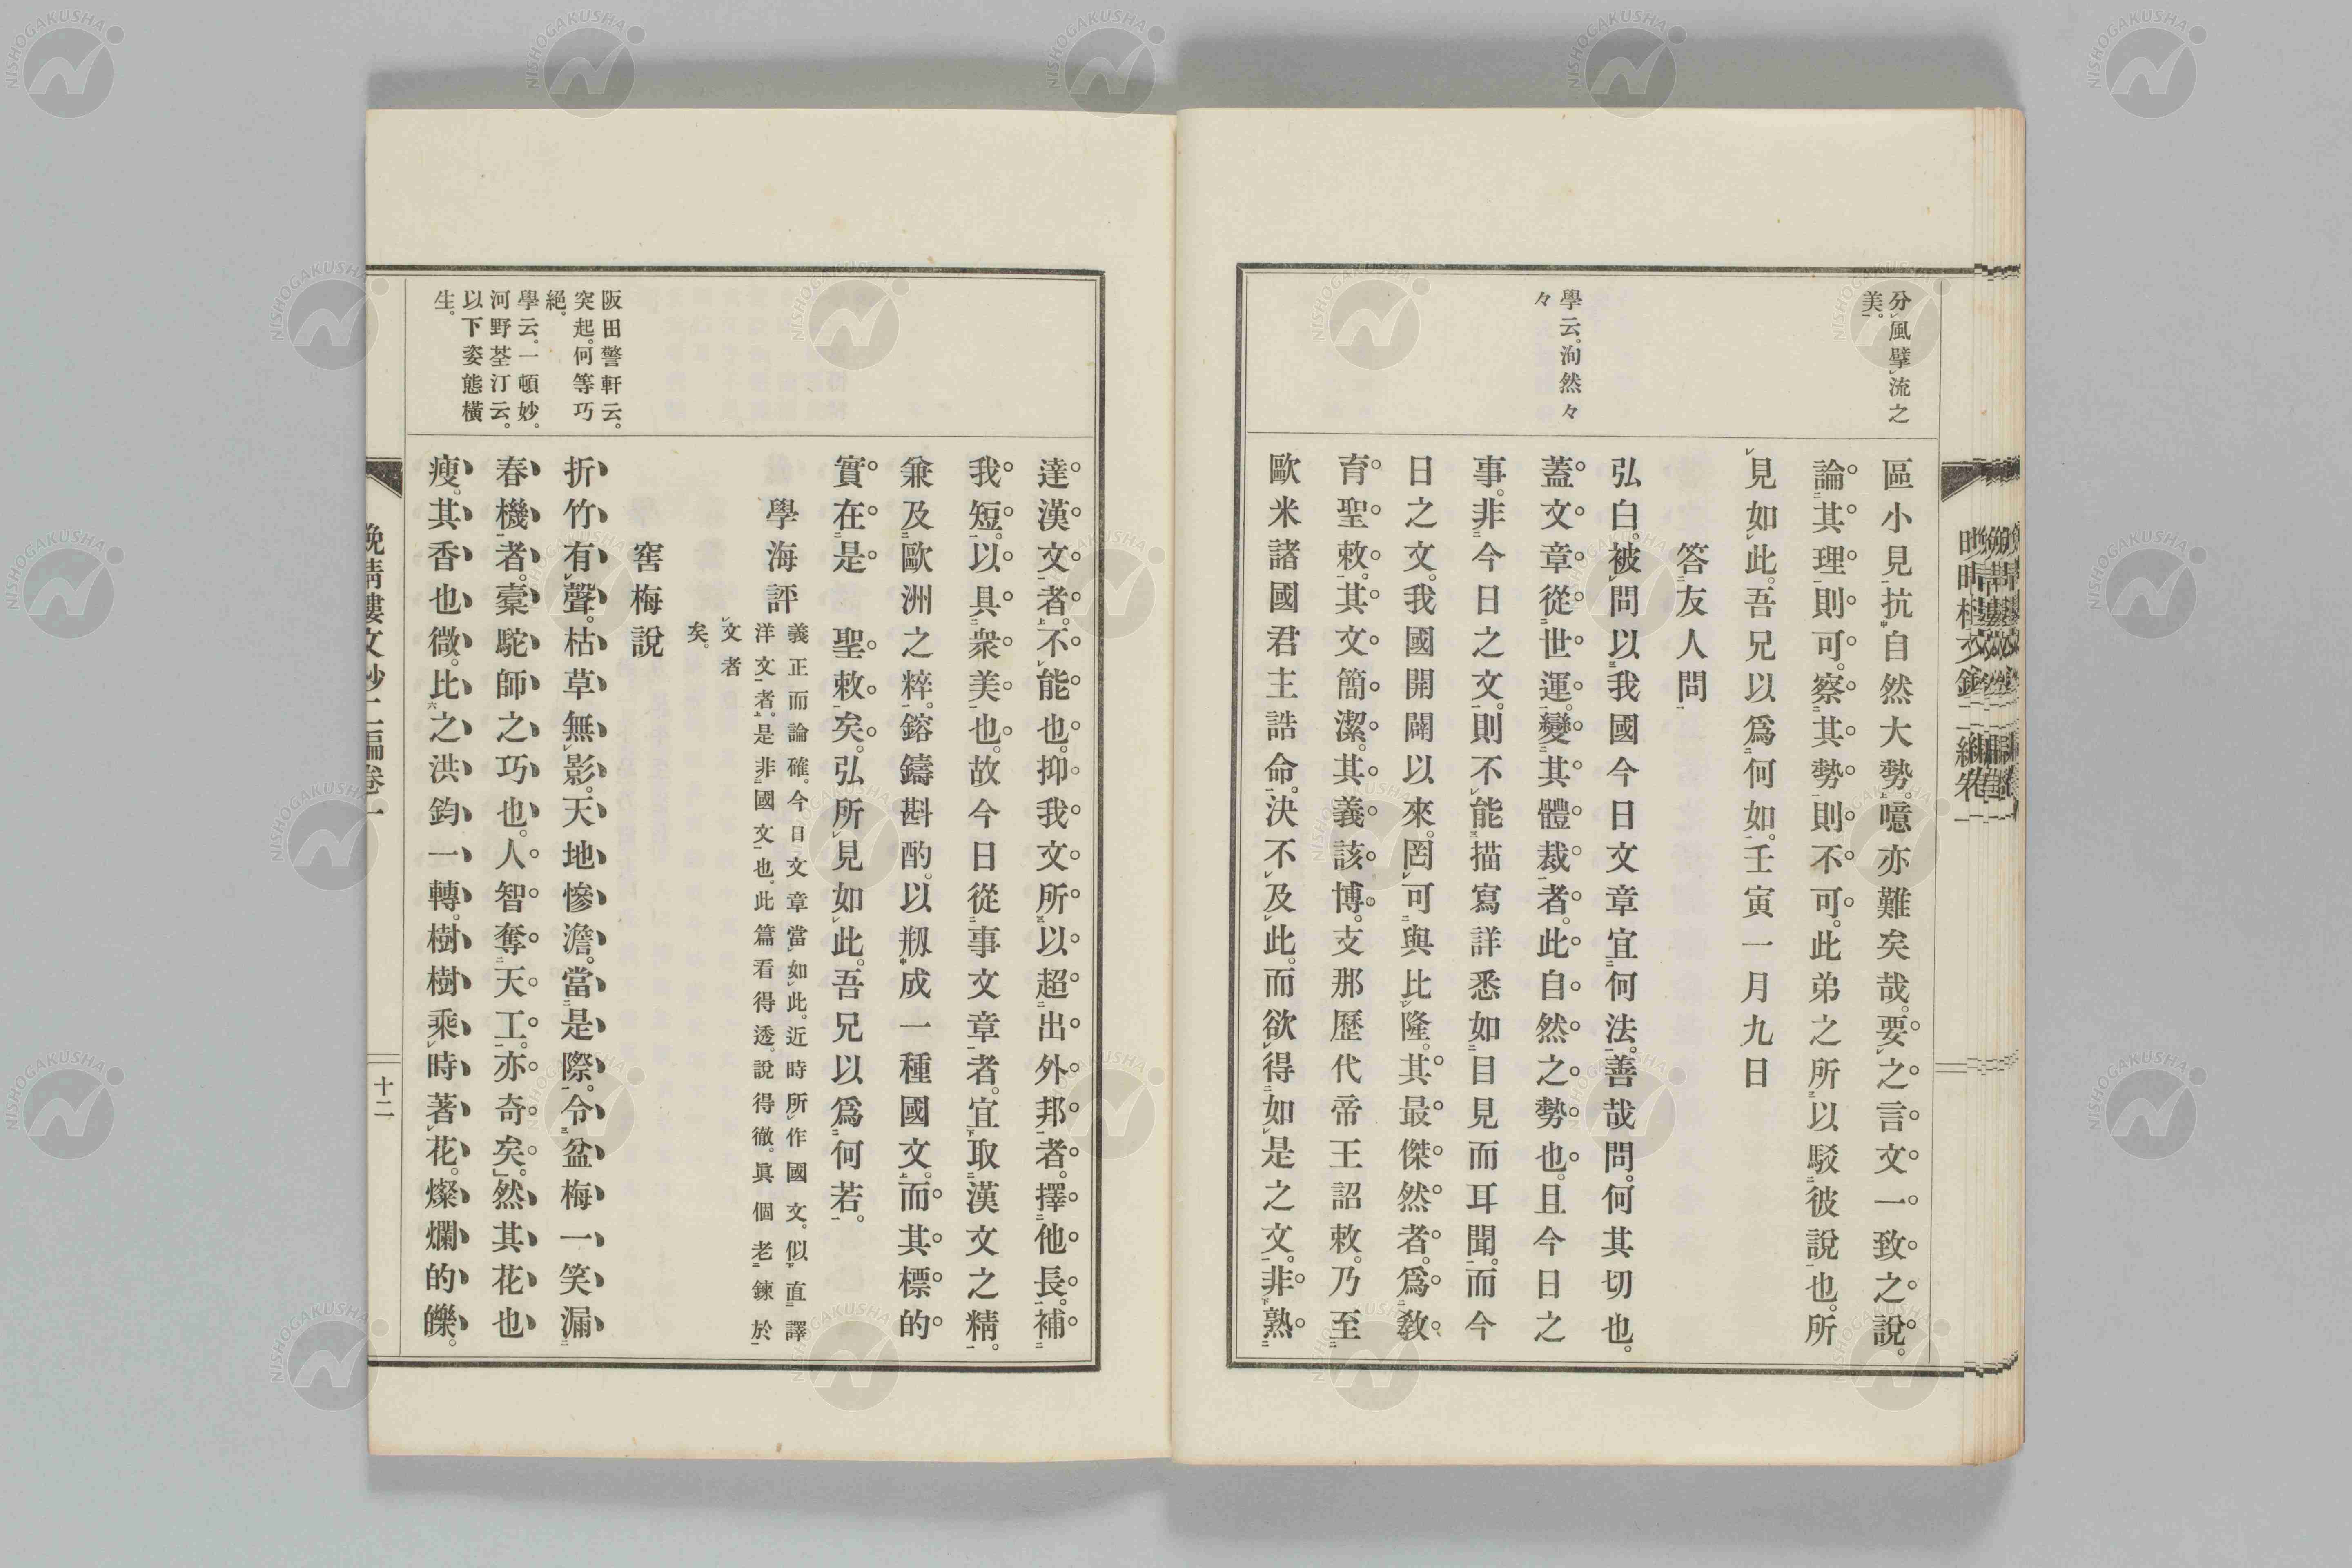 分風擘流之
美。
學云。洵然々
々
區小見抗自然大勢。噫亦難矣哉。要之言文一致之說。
論其理則可。察其勢則不可。此弟之所以駁彼說也。所
見如此。吾兄以爲何如。壬寅一月九日
答友人問
弘白。被問以我國今日文章宜何法。善哉問。何其切也。
蓋文章從世運變其體裁者。此自然之勢也。且今日之
事。非今日之文則不能描寫詳悉如目見而耳聞。而今
日之文。我國開闢以來。罔可與比隆。其最傑然者。爲敎
育聖敕。其文簡潔。其義該博。支那歷代帝王詔敕。乃至
歐米諸國君主誥命。決不及此。而欲得如是之文。非熟
阪田警軒云。
突起。何等巧
絕。
學云。一頓妙。
河野荃汀云。
以下姿態橫
生。
達漢文者。不能也。抑我文所以超出外邦者。擇他長。補
我短。以具衆美也。故今日從事文章者。宜取漢文之精。
兼及歐洲之粹。鎔鑄斟酌。以剏成一種國文。而其標的
實在是 聖敕矣。弘所見如此。吾兄以爲何若。
學海評 義正而論確。今日文章當如此。近時所作國文。似直譯
洋文者。是非國文也。此篇看得透。說得徹。眞個老鍊於
文者
矣。
窖梅說
折竹有聲。枯草無影。天地慘澹。當是際。令盆梅一笑漏
春機者。橐駝師之巧也。人智奪天工。亦奇矣。然其花也
瘦。其香也微。比之洪鈞一轉。樹樹乘時著花。燦爛的皪。
晚晴樓文鈔二編卷一
十二